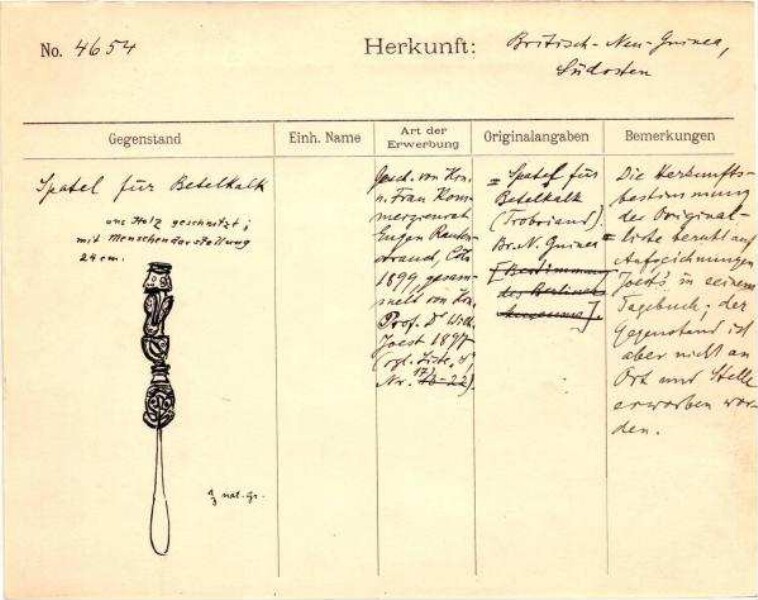 No. 4654
Herkunft: Britisch-Neu-Guinea,
Südosten
Gegenstand
Einh. Name
Art der
Erwerbung
Originalangaben
Bemerkungen
Spatel für Betelkalk
aus Holz geschnitzt;
mit Menschendarstellung
24 cm.
1/3 nat. Gr.
Gesch. von Hrn.
u. Frau Kom-
merzienrat
Eugen Rauten-
strauch, Cöln
1899, gesam-
melt von Hrn.
Prof. Dr Wilh.
Joest 1897
(vgl. Liste,
Nr. 17
= Spatel für
Betelkalk
(Trobriand).
Br. N. Guinea =
[Bestimmung
des Berliner
Museums].
Die Herkunfts-
bestimmung
der Original-
liste beruht auf
Aufzeichnungen
Joest's in seinem
Tagebuch; der
Gegenstand ist
aber nicht an
Ort und Stelle
erworben wor-
den.